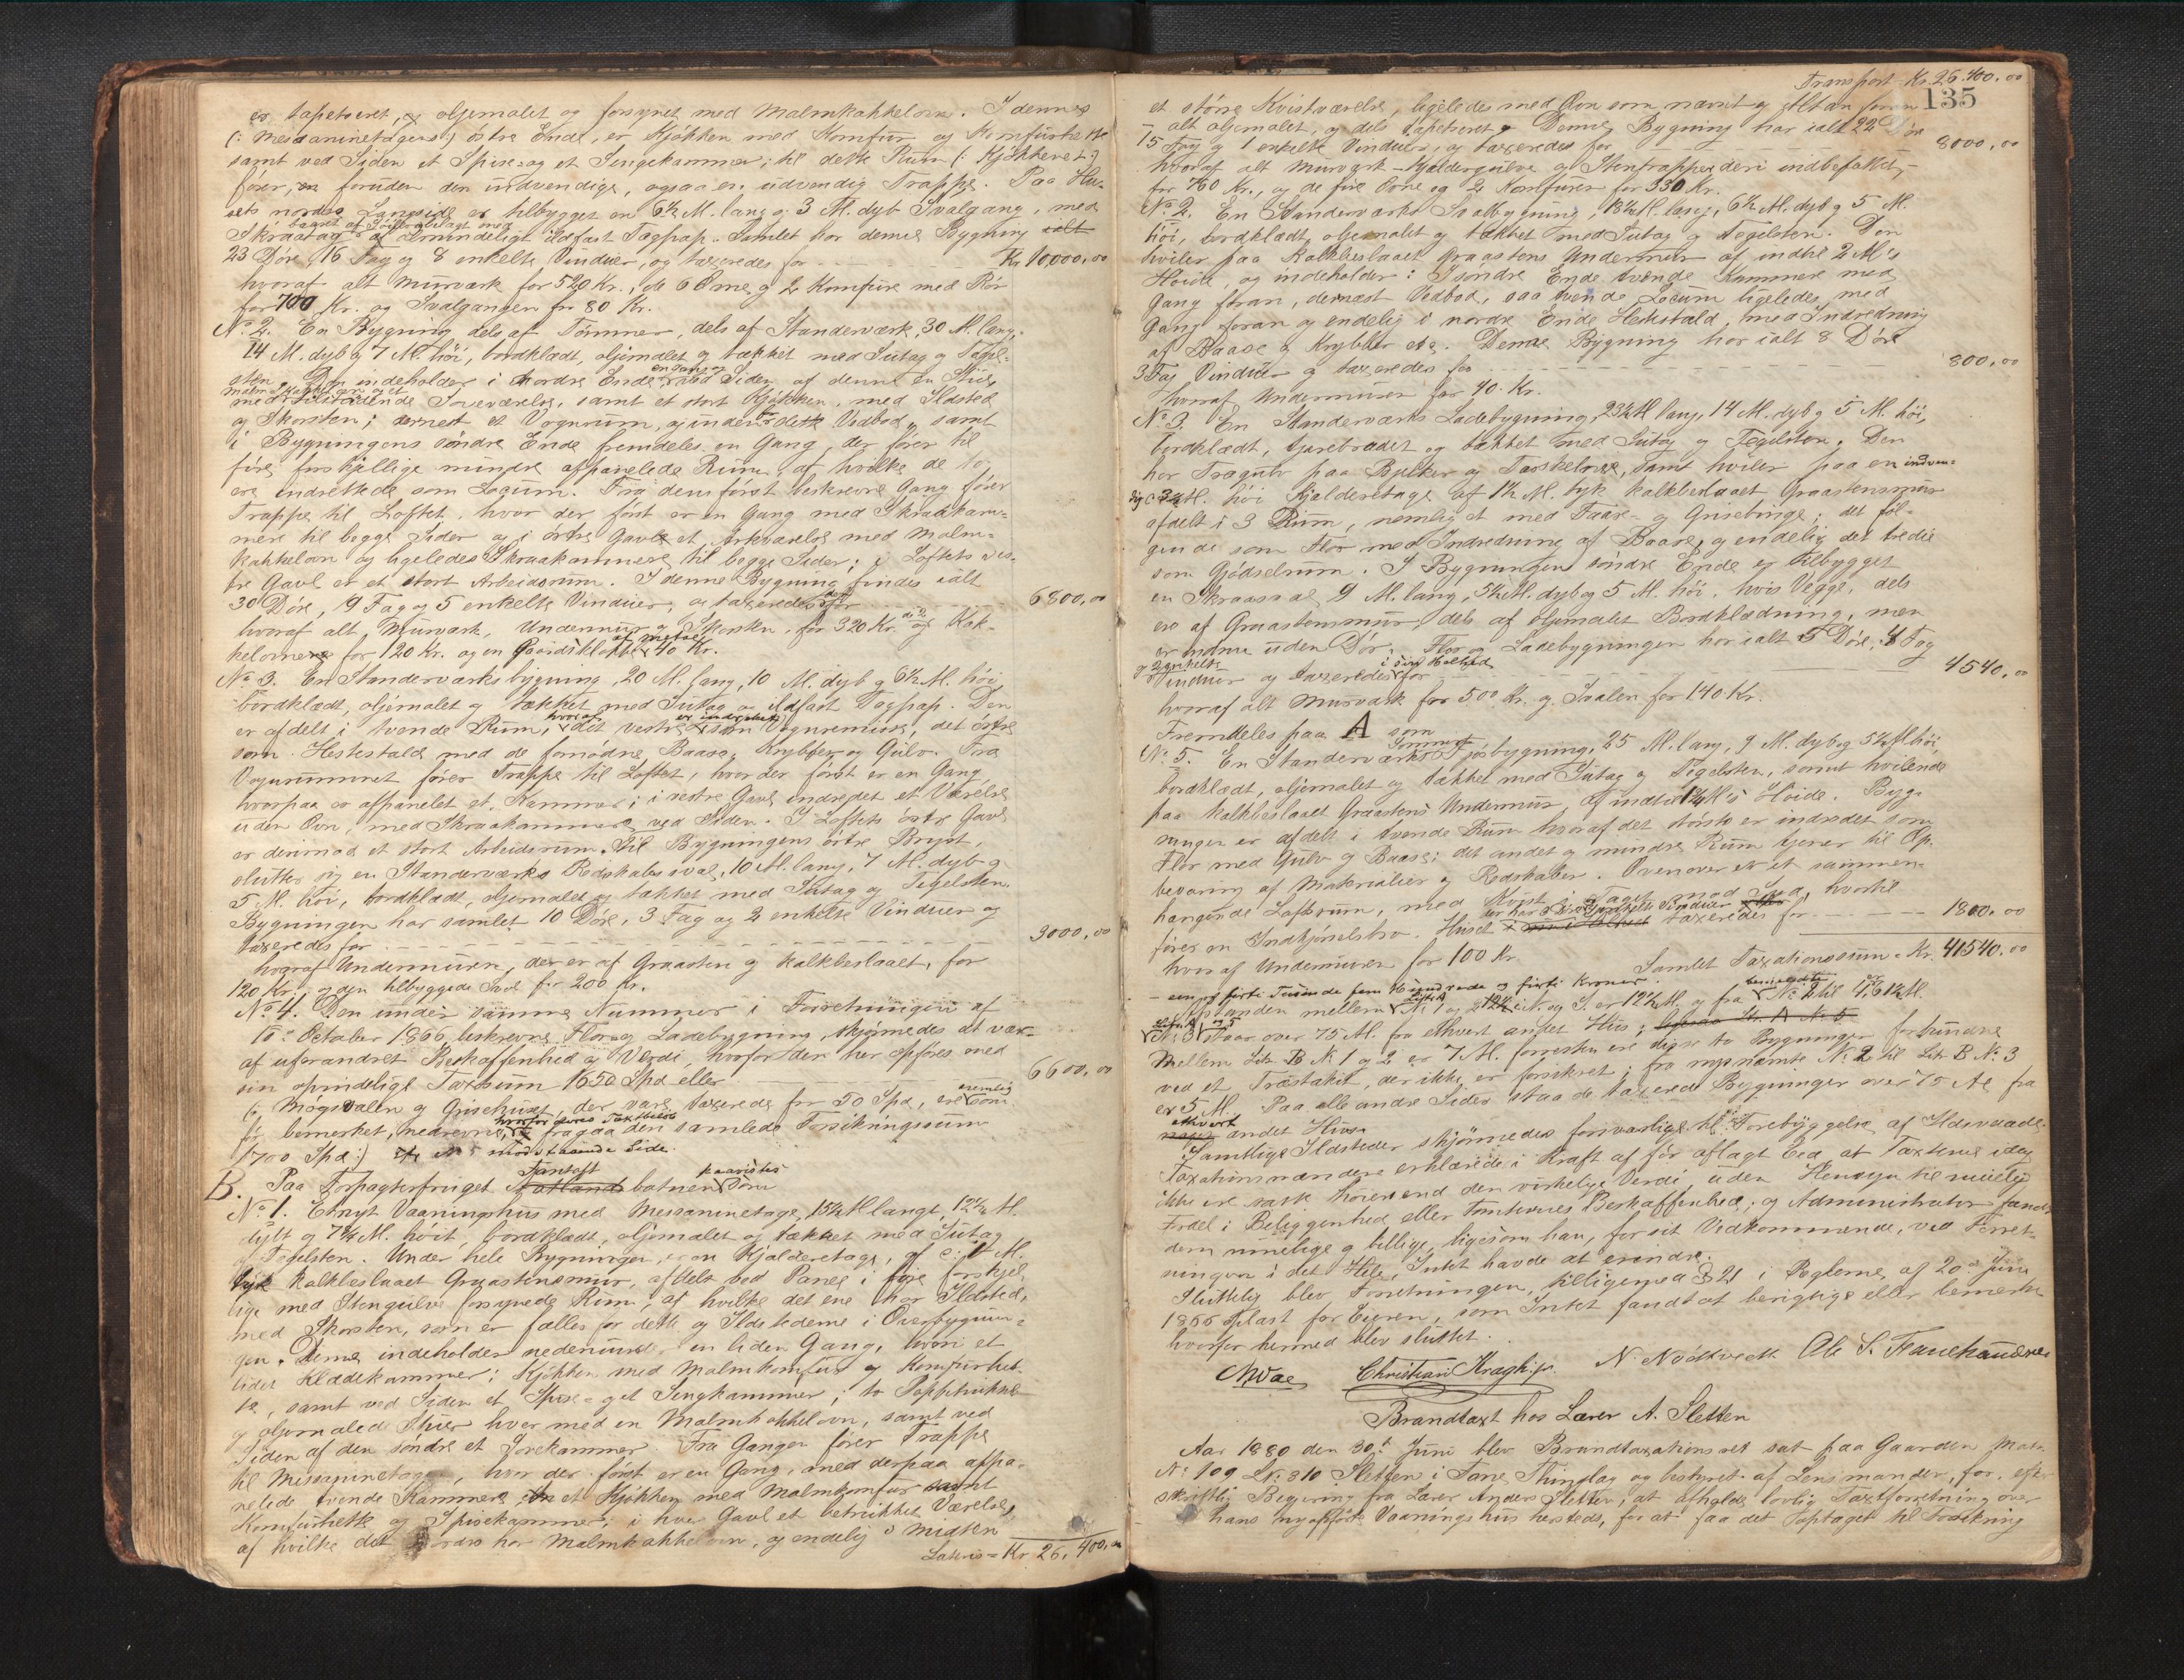 er tapetseret, & oljemalet og forsynet med Malmkakkelovn. I dennes
(: Messaninetagens) østre Ende, er Kjøkken med Komfur og Komfurhætte
samt ved Siden et Spise- og et Sengekammer; til dette Rum (: Kjøkkenet:)
fører, en foruden den indvendige, ogsaa en udvendig Trappe. Paa Hu-
sets nordre Langside er tilbygget en 6½ M. lang og 3 M. dyb Svalgang, med
Skraatag af almindeligt ildfast Tagpap. Samlet har denne Bygning ialt
23 Døre, 16 Fag og 8 enkelte Vinduer, og taxeredes for - - - Kr 10,000,00
hvoraf alt Murværk for 520 Kr., de 6 Ovne og 2 Komfure med Rør
for 700 Kr. og Svalgangen for 80 Kr.
No 2. En Bygning dels af Tømmer, dels af Standerværk, 30 M. lang,
14 M. dyb og 7 M. høi, bordklædt, oljemalet og tækket med Sutag og Tegl-
sten. Den indeholder i nordre Ende en Gang og ved Siden af denne en Stue
med Malmkakkelovn og et tilstødende Soveværelse, samt et stort Kjøkken, med Ildsted
og Skorsten; dernest et Vognrum, og under dette Vedbod, samt
i Bygningens søndre Ende fremdeles en Gang, der fører til
fire forskjellige mindre afpanelede Rum, af hvilke de to
ere indrettede som Locum. Fra den først beskrevne Gang fører
Trappe til Loftet, hvor der først er en Gang med Skraakam-
mere til begge Sider og i østre Gavl et Arkværelse med Malm-
kakkelovn og ligeledes Skraakammere til begge Sider; i Loftets ves-
tre Gavl er et stort Arbeidsrum. I denne Bygning findes ialt
30 Døre, 9 Fag og 5 enkelte Vinduer, og taxeredes den for - - - 6800,00
hvoraf alt Murværk, Undermur og Skorsten, for 320 Kr. de 2 Kak-
kelovne for 120 Kr. og en Gaardsklokke af Metal 40 Kr.
No 3. En Standerværksbygning, 20 M. lang, 10 M. dyb og 6½ M. høi,
bordklædt, oljemalet og tækket med Sutag og ildfast Tagpap. Den
er afdelt i tvende Rum, hvoraf det vestre er indrettet som Vognremisse, det østre
som Hestestald med de fornødne Baase, Krybber og Gulv. Fra
Vognrummet fører Trappe til Loftet, hvor der først er en Gang,
hvorpaa er afpanelet et Kammer; i vestre Gavl indredet et Værelse
uden Ovn, med Skraakammere ved Siden. I Loftets østre Gavl
er derimod et stort Arbeidsrum. Til Bygningens østre Bryst,
slutter sig en Standerværks Redskabssval, 10 M. lang, 7 M. dyb og
5 M. høi, bordklædt, oljemalet og tækket med Sutag og Tegelsten.
Bygningen har samlet 10 Døre, 3 Fag og 2 enkelte Vinduer og
taxeredes for - - - 3000,00
hvoraf Undermuren, der er af Graasten og kalkbeslaaet, for
120 Kr., og den tilbyggede Sval for 200 Kr.
No 4. Den under samme Nummer i Forretningen af
10de October 1866 beskrevne Flor og Ladebygning, skjønnedes at være
af uforandret Beskaffenhed og Værdi, hvorfor den her opføres med
sin oprindelige Taxtsum 1650 Spd eller - - - 6600,00
(: Møgsvalen og Grisehuset, der vare taxerede for 50 Spd, ere nemlig som
før bemerket, nedrevne, hvorfor deres Taxtbeløb fragaa den samlede Forsikringssum
1700 Spd:) modstaaende Side.
B. Paa Forpagterbruget Fantoft botnen kaarstes som
No 1. Et nyt Vaaningshus med Messaninetage, 15½ M langt, 12½ M.
dybt og 7½ M. høit, bordklædt, oljemalet og tækket med Sutag
og Tegelsten. Under hele Bygningen, er en Kjælderetage, af c: 1 M.
tyk kalkbeslaaet Graastensmur, afdelt ved Panel i fire forskjel-
lige med Stengulve forsynede Rum, af hvilke det ene har Ildsted,
med Skorsten, som er fælles for dette og Ildstederne i Overbygnin-
gen. Denne indeholder nedenunder en liden Gang, hvori et
lidet Klædekammer; Kjøkken med Malmkomfur og Komfurhæt-
te, samt ved Siden et Spise- og et Sengkammer; to Papbetrukne
og oljemalede Stuer hver med en Malmkakkelovn, samt ved
Siden af den søndre et Sovekammer. Fra Gangen fører Trappe
til Messaninetagen, hvor der først er en Gang, med derpaa afpa-
nelede tvende Kammere, et Kjøkken med Malmkomfur samt
Komfurhætte og Spisekammer; i hver Gavl et betrukket Værelse,
af hvilke det nordre har Malmkakkelovn, og endelig i Midten
Lateris = Kr 26,400,00
Transport - Kr. 26.400,00
135
et større Kvistværelse, ligeledes med Ovn som nævnt og Altan foran
alt oljemalet, og dels tapetseret. Denne Bygning har ialt 22 Døre
15 Fag og 1 enkelte Vinduer, og taxeredes for - - - 8000,00
hvoraf alt Murværk - Kjældergulve og Stentrapper deri indbefattet,
for 760 Kr., og de fire Ovne og 2 Komfurer for 330 Kr.
No 2. En Standerværks Svalbygning, 18½ M. lang, 6½ M. dyb og 5 M.
høi, bordklædt, oljemalet og tækket med Sutag og Tegelsten. Den
hviler paa Kalkbeslaaet Graastens Undermur af indtil 2 M's
Høide, og indeholder: I søndre Ende tvende Kammere med
Gang foran, dernæst Vedbod, saa tvende Locum ligeledes med
Gang foran og endelig i nordre Ende Hestestald, med Indredning
af Baase og Krybber etc. Denne Bygning har ialt 8 Døre
3 Fag Vinduer og taxeredes for - - - 800,00
hvoraf Undermuren for 90 Kr.
No 3. En Standerværks Ladebygning, 23½ M lang, 14 M. dyb og 5 M. høi,
bordklædt, tjærebrædet og tækket med Sutag og Tegelsten. Den
har Trægulv paa Bjelker og Tærskelove, samt hviler paa en indven-
dig c: 3½ M. høi Kjælderetage af 1½ M. tyk kalkbeslaaet Graastensmur
afdelt i 3 Rum, nemlig et med Faare- og Grisebinge; det føl-
gende som Flor med Indredning af Baase, og endelig det tredie
som Gjødselrum. I Bygningens søndre Ende er tilbygget
en Skraasval 9 M. lang, 5½ M. dyb og 5 M. høi, hvis Vegge, dels
ere af Graastensmur, dels af oljemalet Bordklædning, men
er uden Dør. Flor og Ladebygningen har ialt 5 Døre, 4 Fag
og 2 enkelte Vinduer og taxeredes i sin Helhed for - - - 4540,00
hvoraf alt Murværk for 500 Kr. og Svalen for 140 Kr.
Fremdeles paa A som
No 5. En Standerværks Sommerfjøsbygning, 25 M. lang, 9 M. dyb og 5½ M høi,
bordklædt, oljemalet og tækket med Sutag og Tegelsten, samt hvilende
paa kalkbeslaaet Graastens Undermur, af indtil 1½ M's Høide. Byg-
ningen er afdelt i tvende Rum hvoraf det største er indredet som
Flor med Gulv og Baase; det andet og mindre Rum tjener til Op-
bevaring af Materialier og Redskaber. Ovenover er et sammen-
hængende Loftsrum, med Kvist i Taget mod Syd, hvortil
fører en Indkjørselsbro. Huset taxeredes for - - - 1800,00
hvoraf Undermuren for 100 Kr.
Samlet Taxationssum - Kr. 41540.00
- een og førti Tusinde fem Hundrede og førti Kroner.
Afstanden mellem Litr A No 1 og 2 i N. og S. er 12½ M. og fra No 2 til 4 er 61½ M.
Litr A No 3 og 5 staar over 75 M. fra ethvert andet Hus;
Mellem Litr B No 1 og 2 er 7 M. forresten ere disse to Bygninger forbundne
ved et Træstakit, der ikke er forsikret; fra nysnævnte No 2 til Litr B No 3
er 5 M. Paa alle andre Sider staa de taxerede Bygninger over 75 Al fra
ethvert andet Huus.
Samtlige Ildsteder skjønnedes forsvarlige til Forebyggelse af Ildsvaade.
Taxationsmændene erklærede i Kraft af før aflagt Eed, at Taxterne idag
ikke ere satte høiere end den virkelige Verdi uden Hensyn til muelig
Fordel i Beliggenhed eller Tomternes Beskaffenhed; og Administrator fandt
dem rimelige og billige, ligesom han, for sit Vedkommende, ved Forret-
ningen i det Hele, Intet havde at erindre.
Sluttelig blev Forretningen, tilligemed § 21 i Reglerne af 20de Juni
1866 oplæst for Eieren, som Intet fandt at berigtige eller bemerke
hvorfor hermed blev sluttet.
Christian Kragh jr. N. Nødtvedt Ole S. Fanehaudne
Brandtaxt hos Lærer A. Sletten
Aar 1880 den 30te Juni blev Brandtaxationsret sat paa Gaarden Matr.
No 109 LNo 310 Sletten i Fane Thinglag og bestyret af Lensmanden, for, efter
skriftlig Begjering fra Lærer Anders Sletten, at afholde lovlig Taxtforretning over
hans nyopførte Vaaningshus hersteds, for at faa det optaget til Forsikring